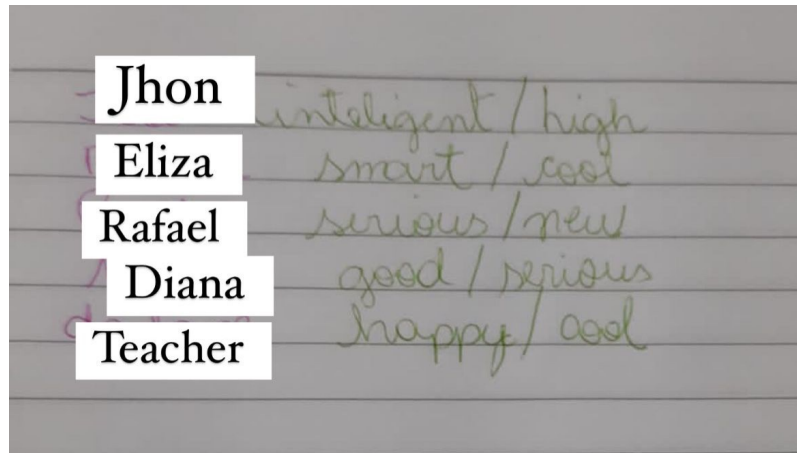 Jhon inteligent / high
Eliza smart / cool
Rafael serious / new
Diana good / serious
Teacher happy / cool